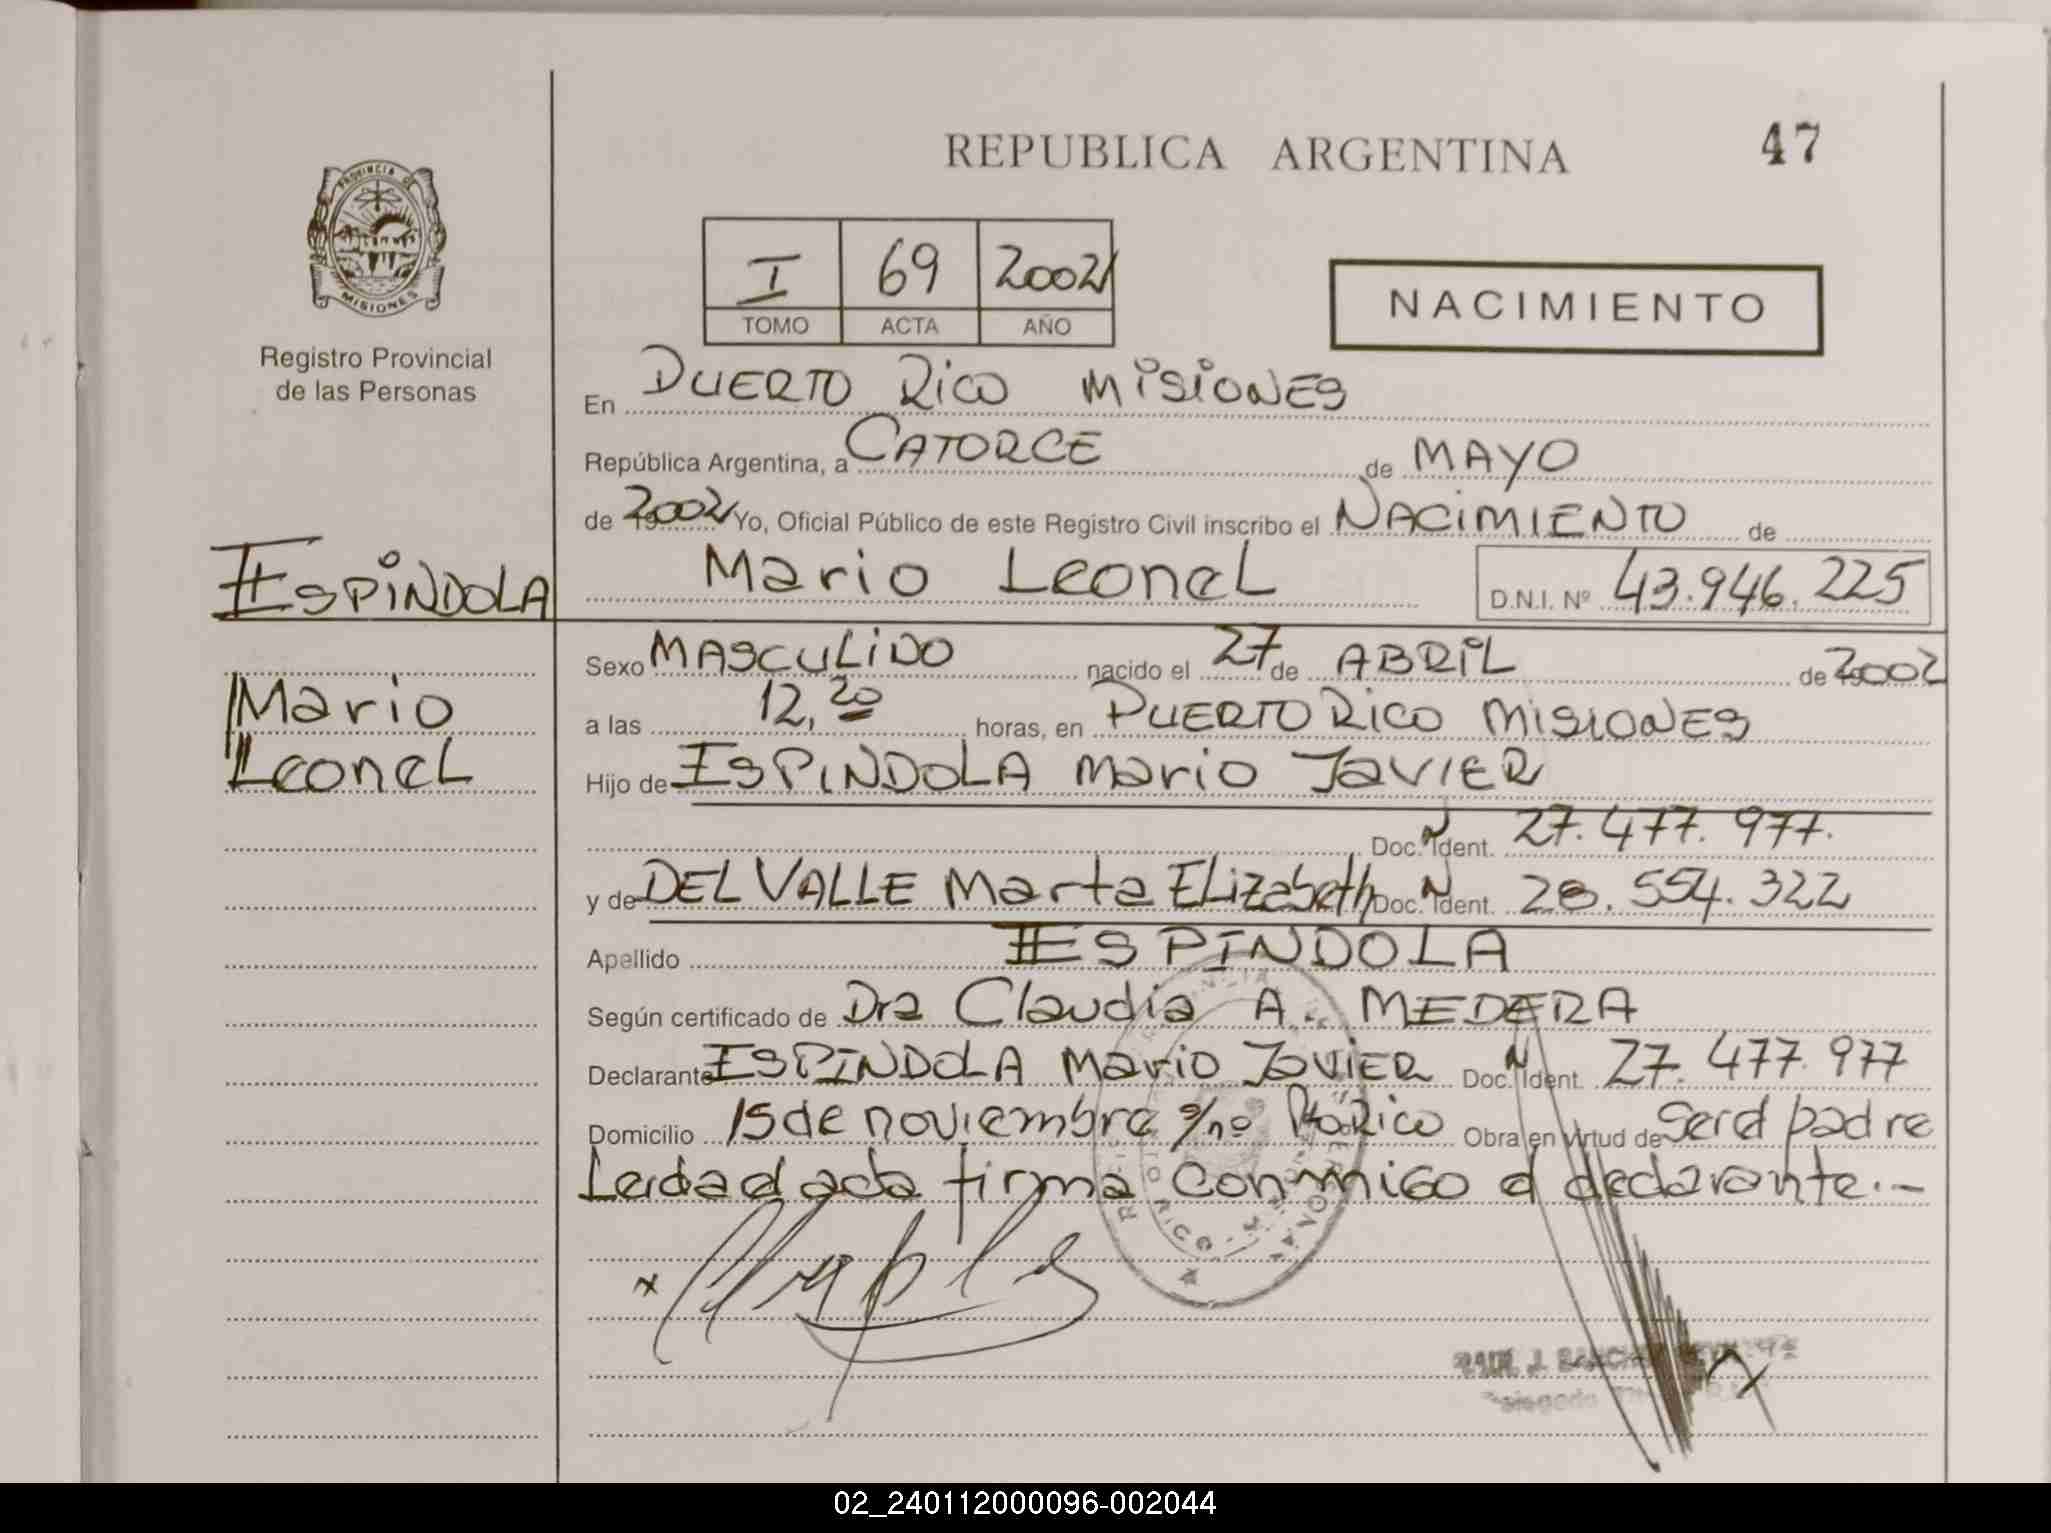 REPUBLICA ARGENTINA
47
PROVINCIA DE
MISIONES
Registro Provincial
de las Personas
I 69 2002
TOMO ACTA AÑO
NACIMIENTO
En PUERTO RICO MISIONES
República Argentina, a CATORCE de MAYO
de 2002 Yo, Oficial Público de este Registro Civil inscribo el NACIMIENTO de
ESPINDOLA Mario Leonel D.N.I. Nº 43.946.225
Mario
Leonel
Sexo MASCULINO nacido el 27 de ABRIL de 2002
a las 12,20 horas, en PUERTO RICO MISIONES
Hijo de ESPINDOLA Mario JAVIER
Doc. Ident. 27.477.977.
y de DEL VALLE Marta ELizabeth Doc. Ident. 28.554.322
Apellido ESPINDOLA
Según certificado de Dra Claudia A. MEDERA
Declarante ESPINDOLA Mario JAVIER Doc. Ident. 27.477.977
Domicilio 15 de noviembre s/nº Pto Rico Obra en virtud de ser el padre
Leida el acta firma conmigo el declarante.-
RAUL J.
02_240112000096-002044